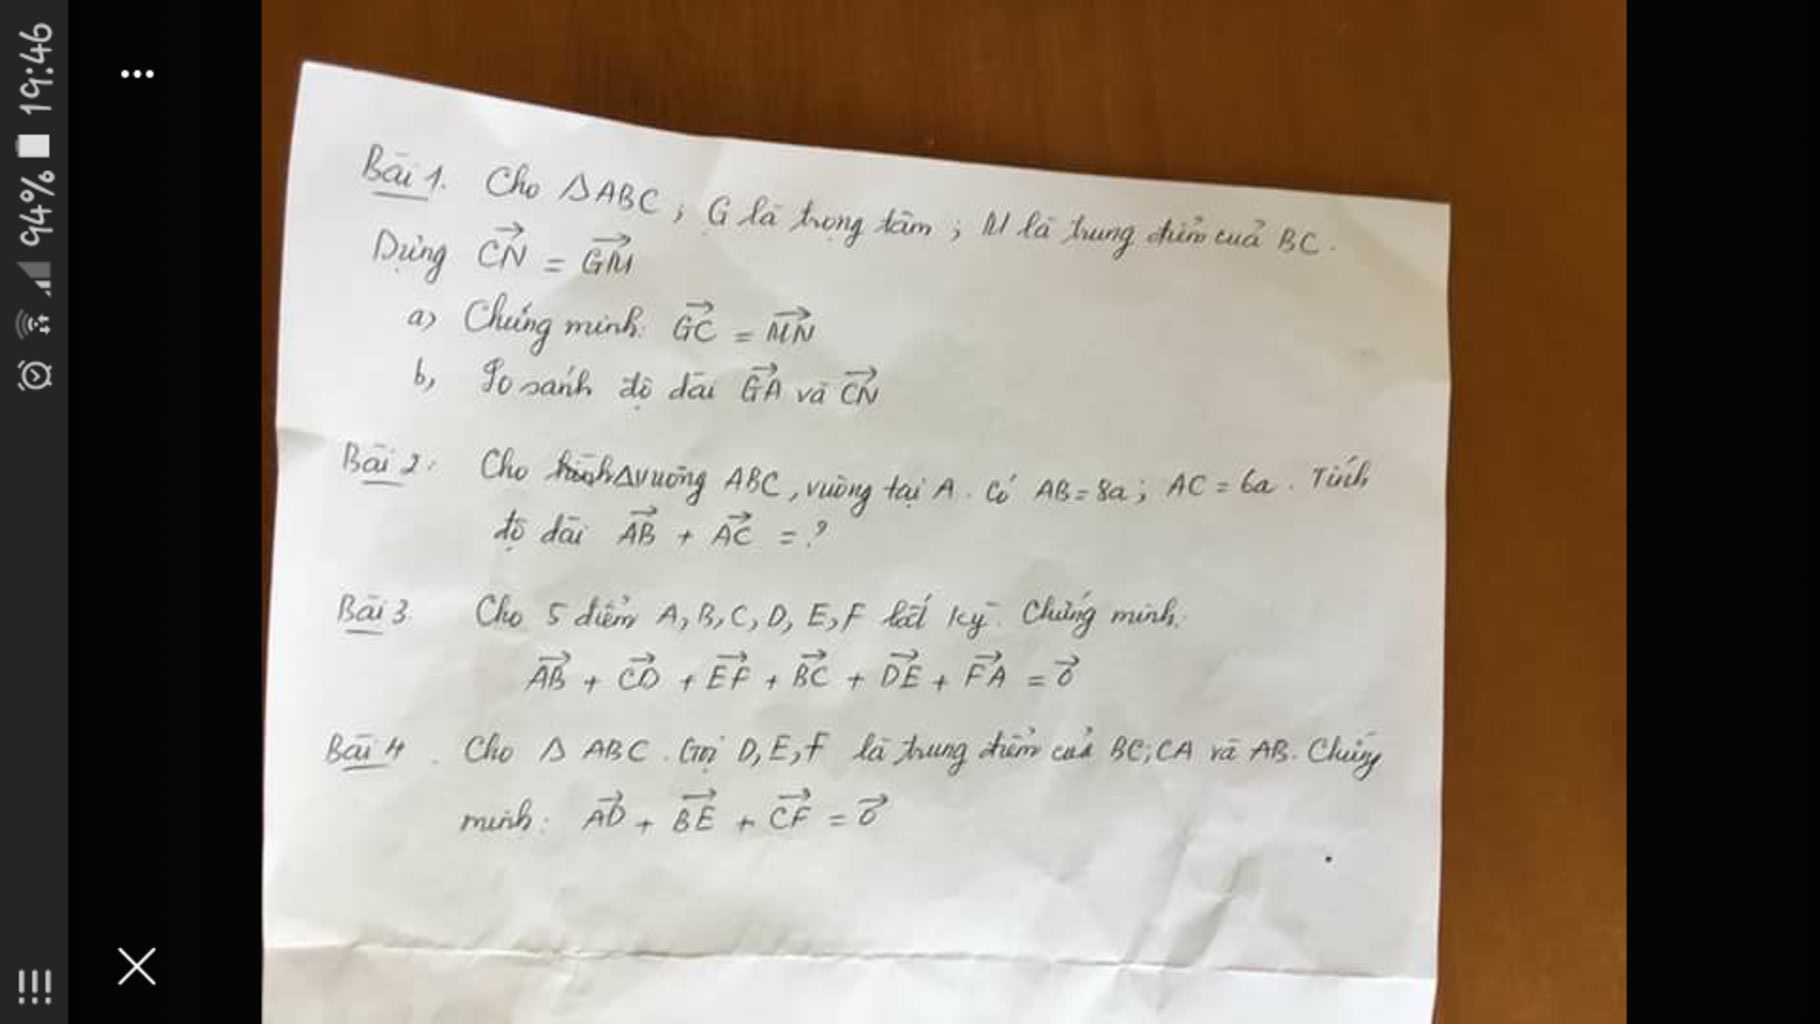 19:46
94%
Bài 1. Cho ΔABC ; G là trọng tâm ; M là trung điểm của BC.
Dựng \overrightarrow{CN} = \overrightarrow{GM}
a) Chứng minh: \overrightarrow{GC} = \overrightarrow{MN}
b, So sánh độ dài \overrightarrow{GA} và \overrightarrow{CN}
Bài 2: Cho Δvuông ABC, vuông tại A. Có AB = 8a ; AC = 6a. Tính
độ dài \overrightarrow{AB} + \overrightarrow{AC} = ?
Bài 3 Cho 5 điểm A, B, C, D, E, F bất kỳ. Chứng minh:
\overrightarrow{AB} + \overrightarrow{CD} + \overrightarrow{EF} + \overrightarrow{BC} + \overrightarrow{DE} + \overrightarrow{FA} = \overrightarrow{0}
Bài 4. Cho Δ ABC. Gọi D, E, F là trung điểm của BC; CA và AB. Chứng
minh: \overrightarrow{AD} + \overrightarrow{BE} + \overrightarrow{CF} = \overrightarrow{0}